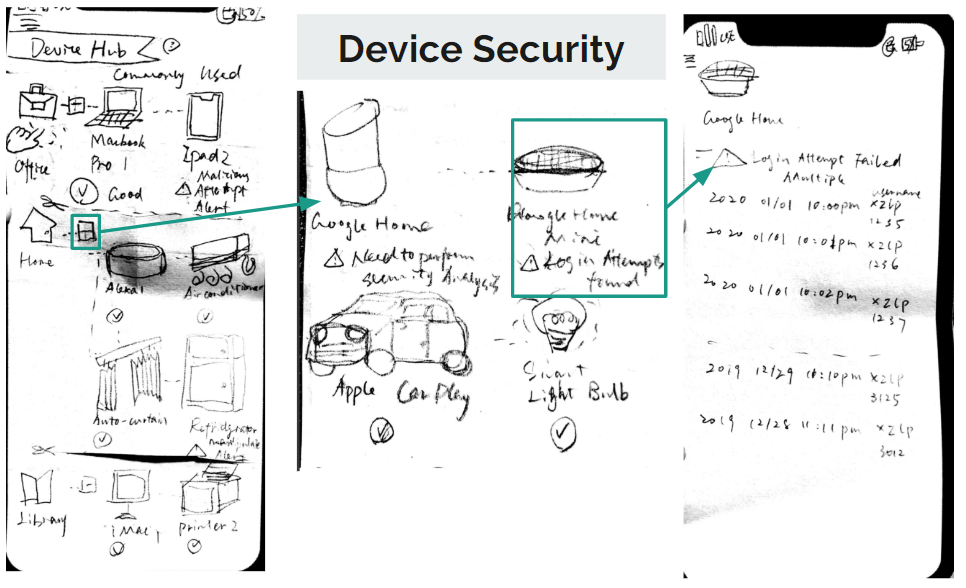 Device Security
Device Hub
Commonly Used
Office
Macbook
Pro 1
Ipad 2
Malicious
Attempt
Alert
Good
Home
Alexa 1
Airconditioner
Auto-curtain
Refridgrator
Alert
Library
iMac 1
printer 2
Google Home
Need to perform
security Analysis
Google Home
Mini
Login Attempts
found
Apple Car Play
Smart
Light Bulb
LTE
Google Home
Login Attempt Failed
Multiple
username
2020 01/01 10:00pm xzlp
1235
2020 01/01 10:01pm xzlp
1236
2020 01/01 10:02pm xzlp
1237
2019 12/29 10:10pm xzlp
3125
2019 12/28 11:11pm xzlp
3012